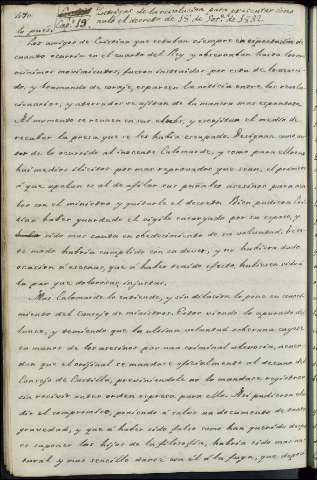 Cap.º 19.
Los amigos de Cristina que estaban siempre en expectación de
cuanto ocurría en el cuarto del Rey y observaban hasta los mas
mínimos movimientos, fueron instruidos por esta de lo acaecido,
y bramando de coraje, esparcen la noticia entre los revolucionarios,
y aterrados se agitan de la manera mas espantosa.
Al momento se reunen en sus clubs, y escogitan el medio de
recobrar la presa que se les había escapado. Designan como autor
de lo ocurrido al inocente Calomarde, y como para ellos no
hai medios ilicitos por mas reprobados que sean, el primero
á que apelan es al de afilar sus puñales asesinos para acabar
con el ministro y quitarle el decreto. Bien pudiera Cristina
haber guardado el sigilo encargado por su esposo, y
sido mas cauta en obedecimiento de su voluntad; de este
modo habría cumplido con su deber, y no hubiera dado
ocasion á escenas, que á haber tenido efecto, hubieran sido á
la par que dolorosas, injustas.
Mas Calomarde lo entiende, y sin dilacion lo pone en conocimiento
del Consejo de ministros. Estos viendo lo apurado del
lance, y temiendo que la ultima voluntad soberana cayese
en manos de los asesinos por una criminal alevosía, acuerdan
que el original se mandase oficialmente al decano del
Consejo de Castilla, previniendole no lo mandase registrar
sin recivir antes orden espresa para ello. Asi pudieron eludir
el compromiso, poniendo á salvo un documento de tanta
gravedad, y que á haber sido falso como han querido despues
suponer los hijos de la filosofía, habría sido mas natural
y mas sencillo